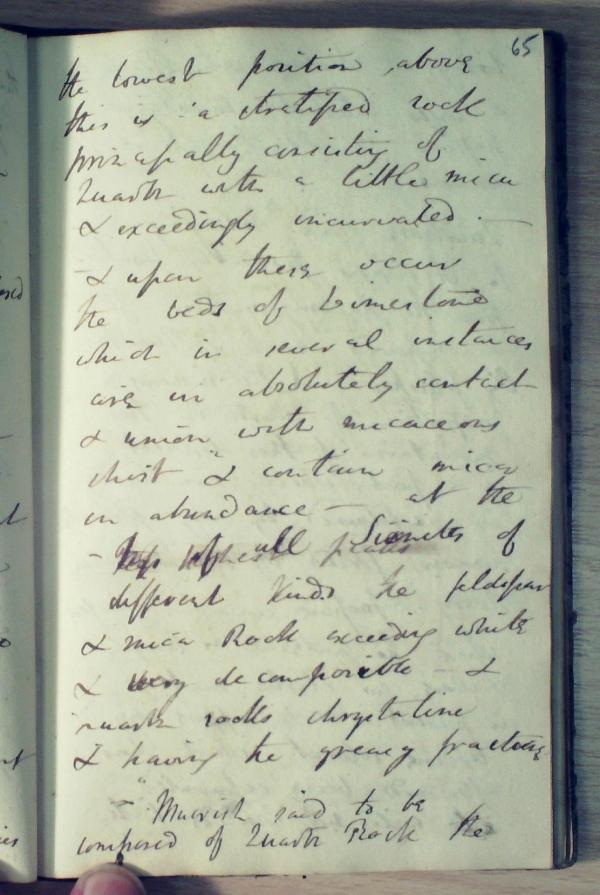 65
the lowest position above
this is a stratified rock
principally consisting of
Quartz with a little mica
& exceedingly incurvated. —
- & upon these occur
the beds of Limestone
which in several instances
are in absolutely contact
& union with micaceous
shist & contain mica
in abundance — at the
- tops of all Sienites of
different kinds the feldspar
& mica Rock exceeding white
& very decomposible — &
quartz rocks chrystaline
& having the greasy fracture
- Muirish said to be
composed of Quartz Rock the